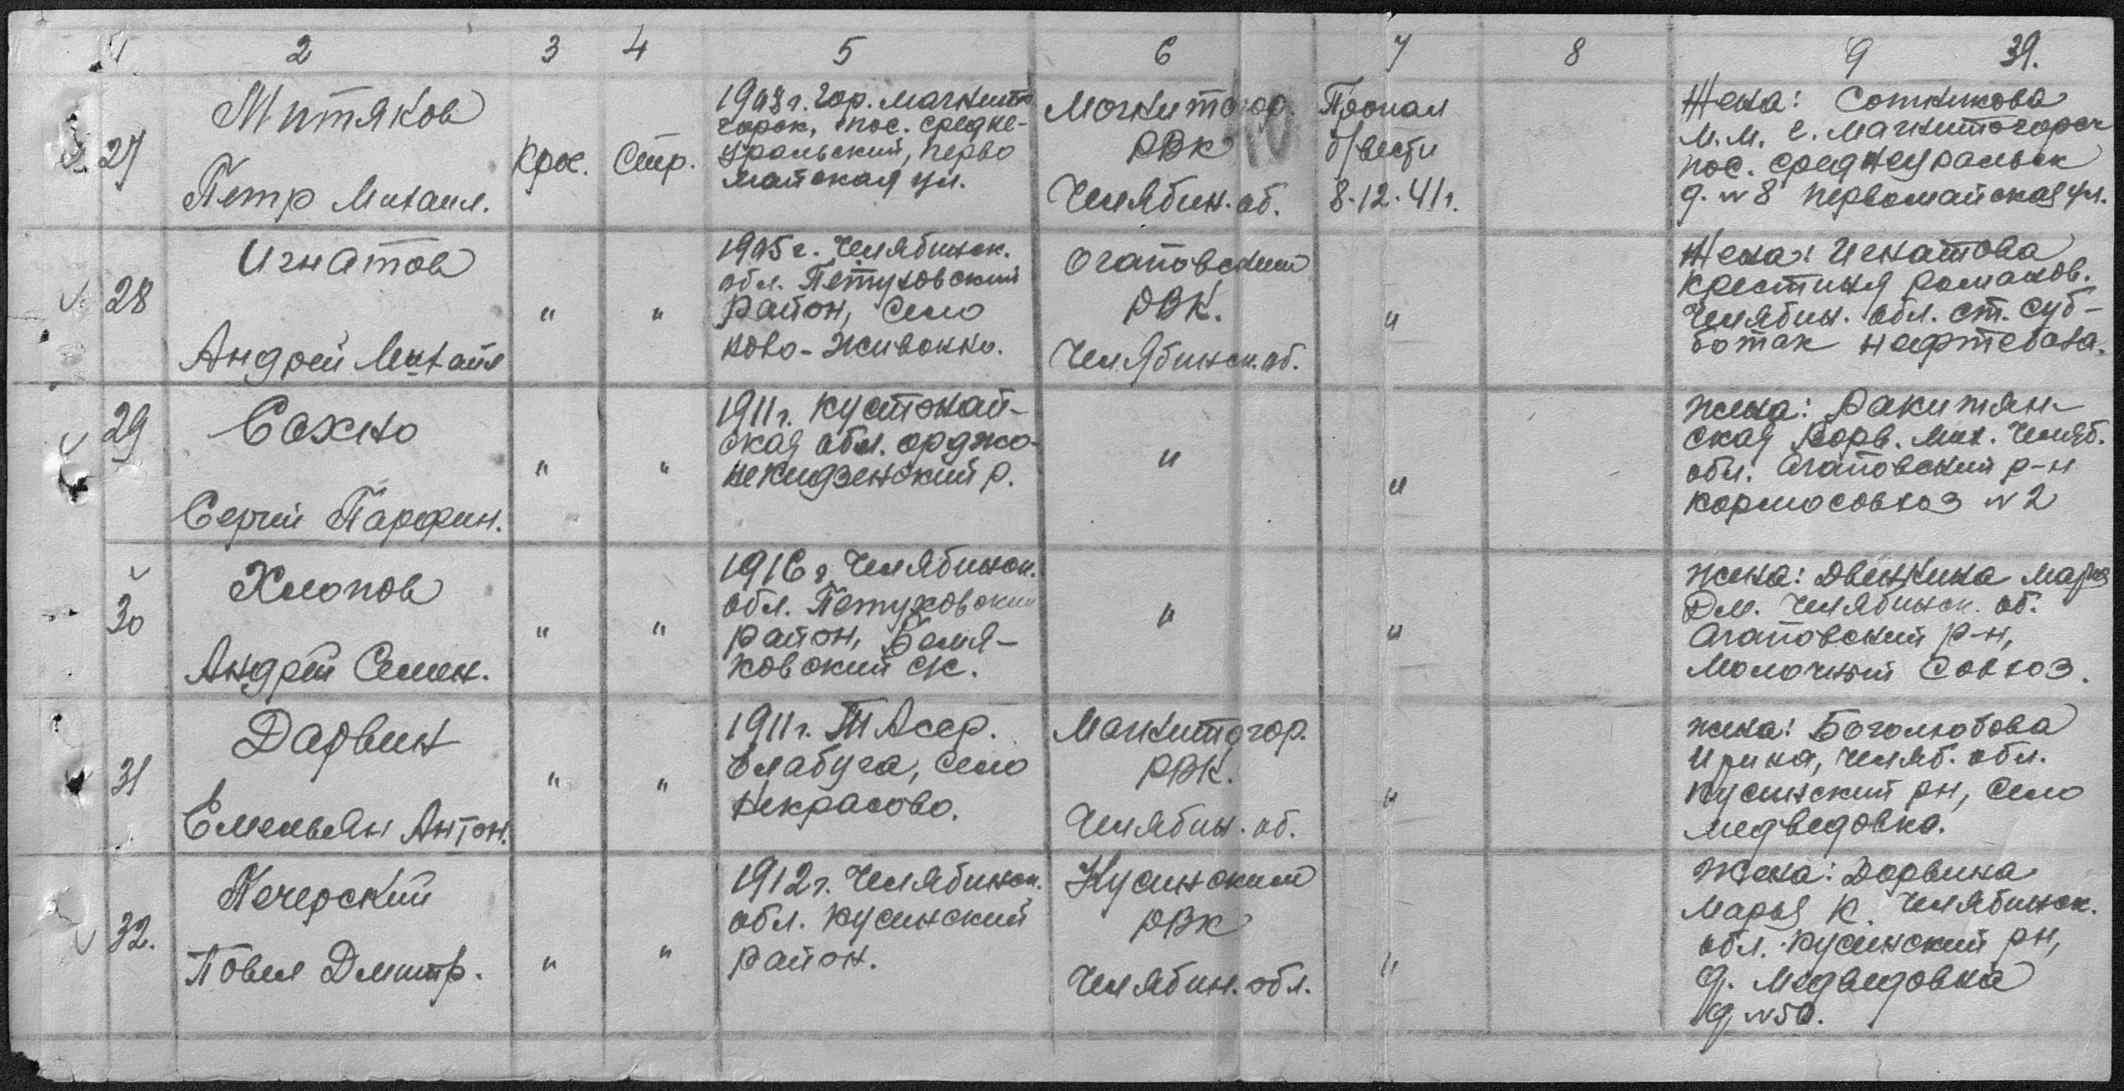 1 2 3 4 5 6 7 8 9 39.
27
Митяков
Петр Михаил.
Крос.
Стр.
1908 г. Гор. Магнито
горск, пос. средне-
уральский, перво
майская ул.
Магнитогор.
РВК
Челябин. об.
Пропал
б/вести
8.12.41 г.
Жена: Сотникова
М.М. г. Магнитогорск
пос. среднеуральск
д. №8 первомайская ул.
28
Игнатов
Андрей Михайл
"
"
1905 г. Челябинск.
обл. Петуховский
район, село
ново-
Огаповский
РВК.
Челябинск. об.
"
Жена: Игнатова
Крестинья роман​ов.
Челябин. обл. ст. суб-
ботак нефтебаза.
29
Сахно
Сергей Парфин.
"
"
1911 г. кустонай-
ская обл. орджо-
некидзенский р.
"
"
жена: Ракитян-
ская Мих. Челяб.
обл. Агаповский р-н
кормосовхоз №2
30
Хлопов
Андрей Семен.
"
"
1916 г Челябинск.
обл. Петуховский
район, Беля-
ковский с/с.
"
"
жена: Двинкина Мария
Дм. Челябинск. об.
Агаповский р-н,
Молочный совхоз.
31
Дарвин
Емельян Антон.
"
"
1911 г. ТАССР.
Елабуга, село
Некрасово.
Магнитогор.
РВК.
Челябин. об.
"
жена: Боголюбова
Ирина, Челяб. обл.
Кусинский рн, село
медведовка.
32.
Печерский
Повел Дмитр.
"
"
1912 г. Челябинск.
обл. Кусинский
район.
Кусинский
РВК
Челябин. обл.
"
Жена: Дорвина
Марья К. Челябинск.
обл. Кусинский рн,
д. Медведовка
д №50.